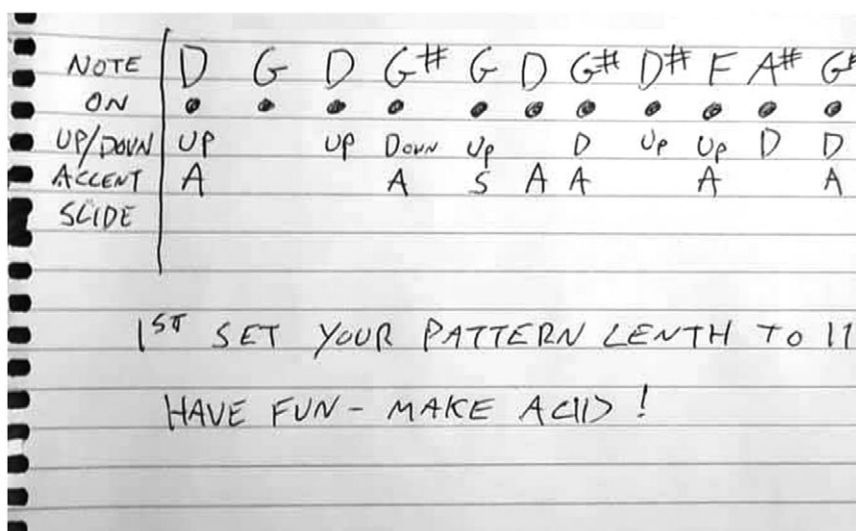 NOTE D G D G# G D G# D# F A# G#
ON
UP/DOWN UP UP DOWN UP D UP UP D D
ACCENT A A S A A A A
SLIDE
1ST SET YOUR PATTERN LENTH TO 11
HAVE FUN - MAKE ACID!